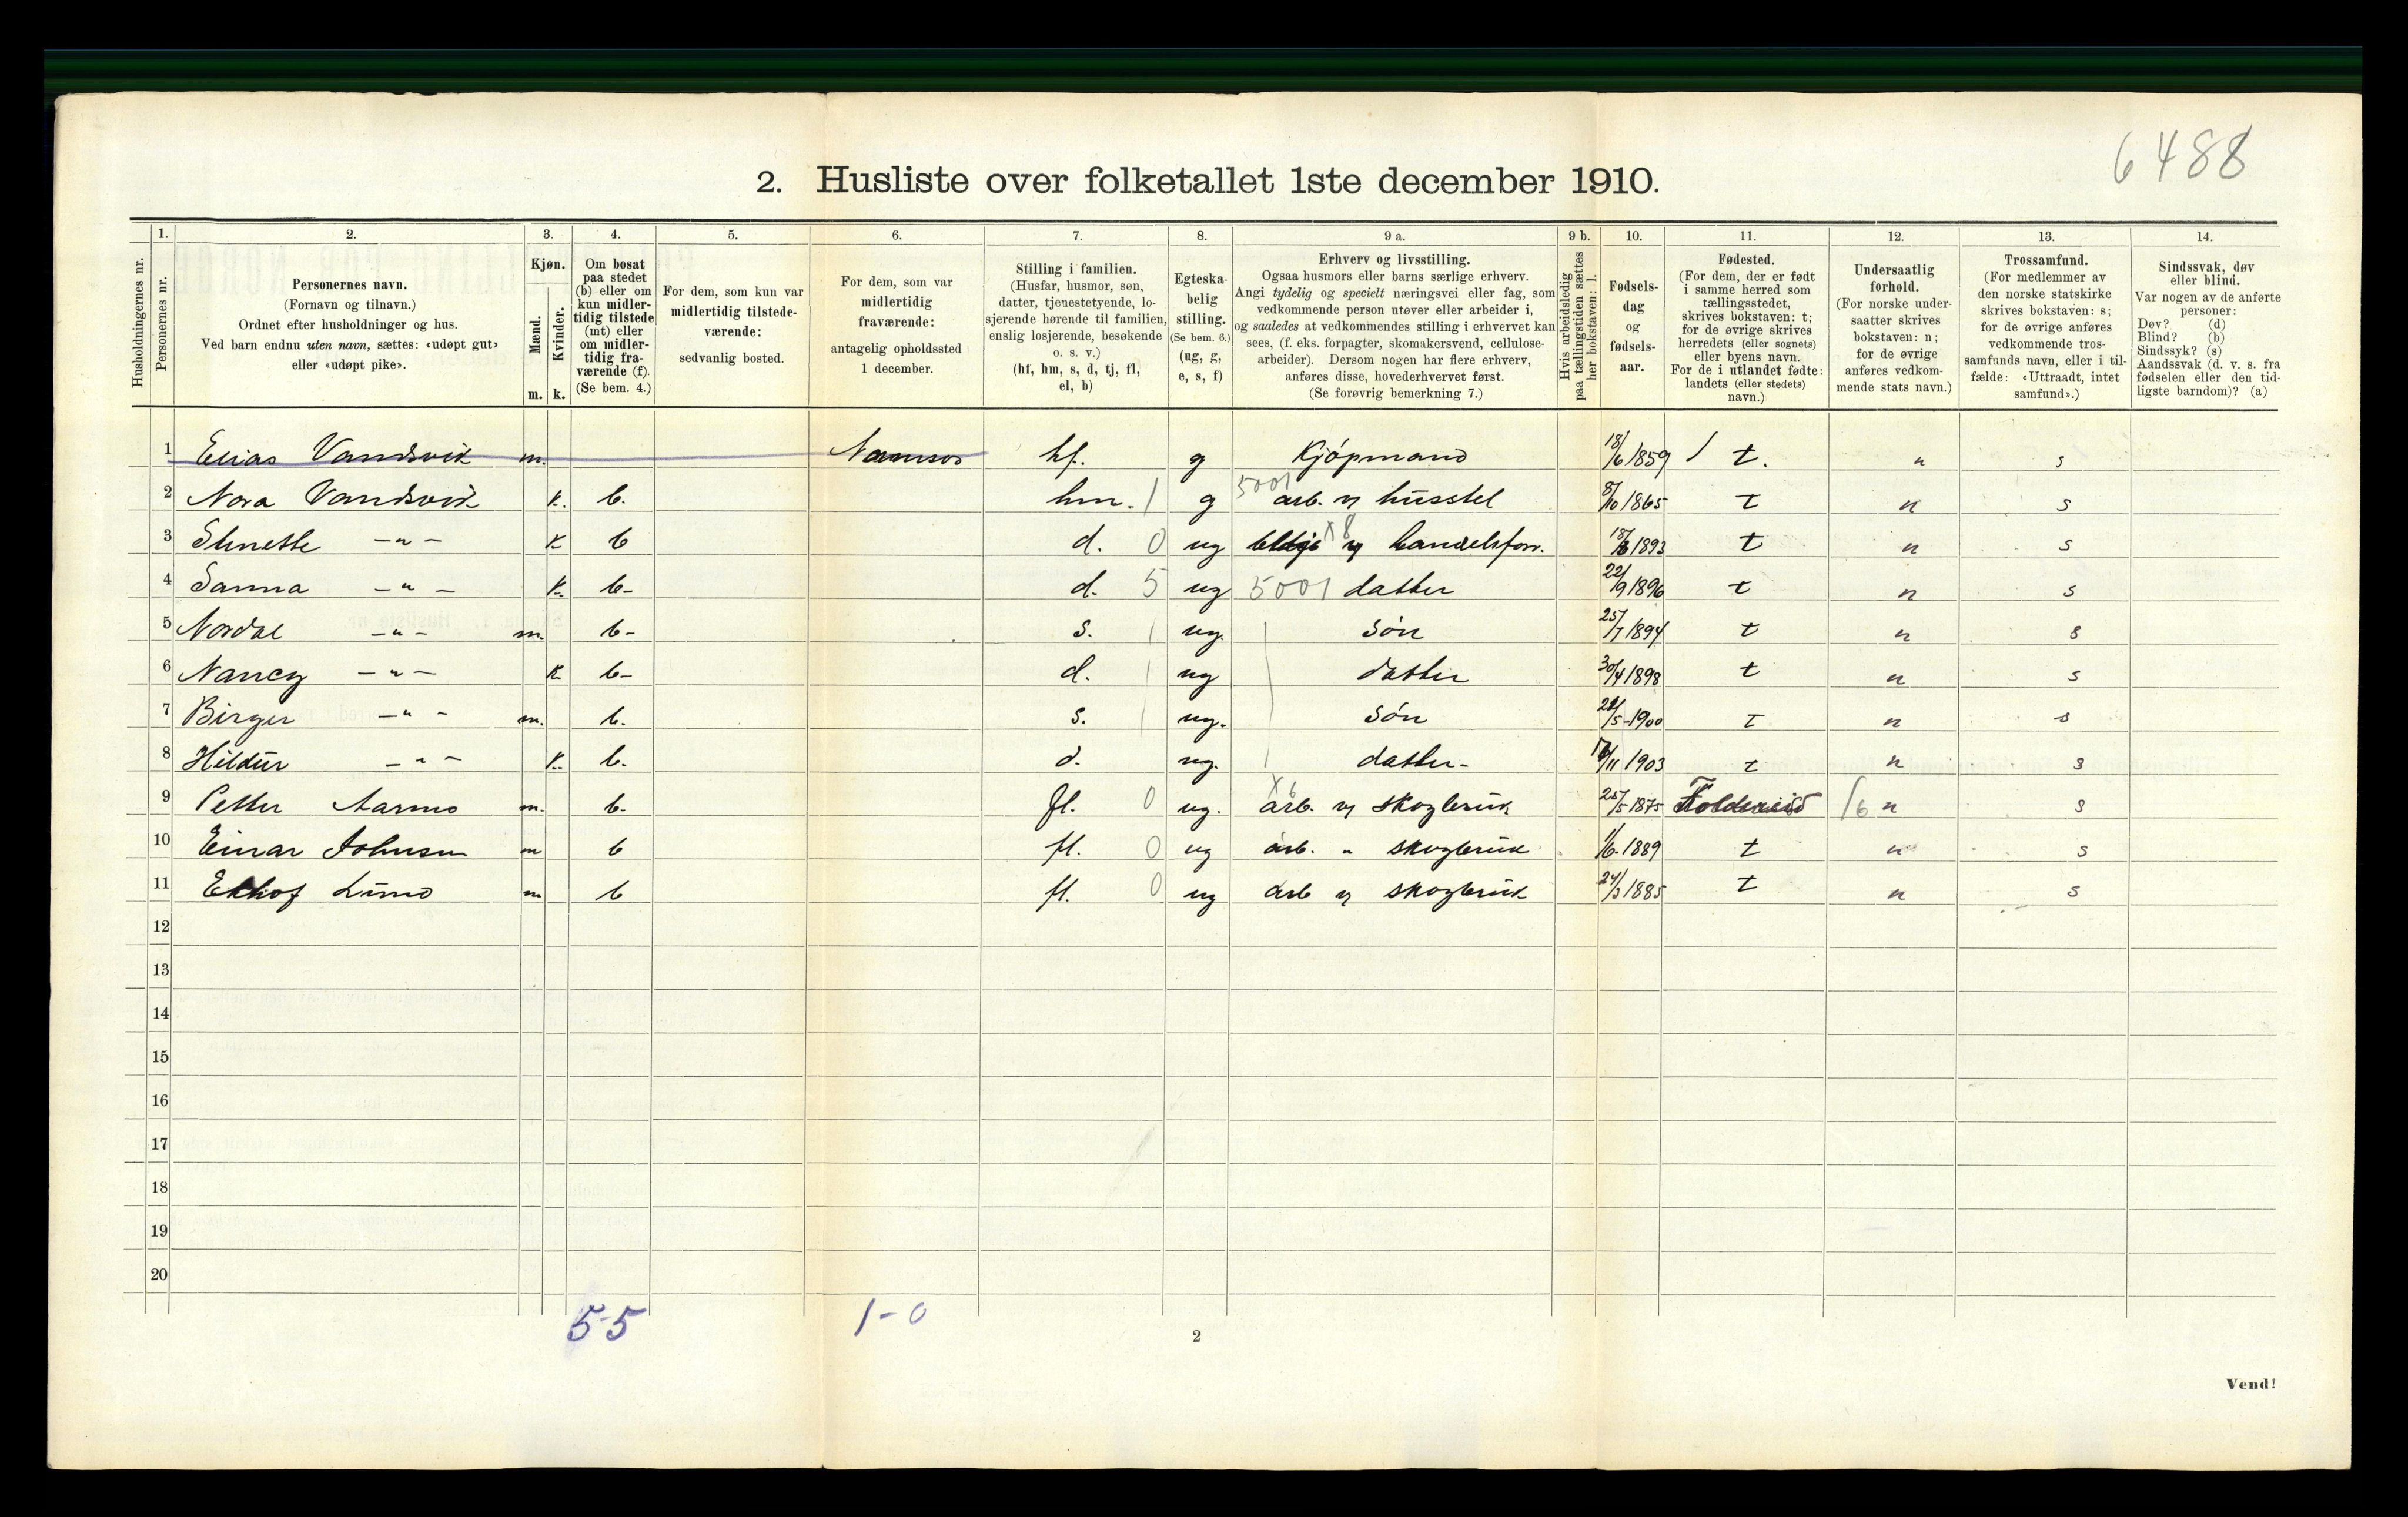 6488
2. Husliste over folketallet 1ste december 1910.
1. 2. 3. 4. 5. 6. 7. 8. 9 a. 9 b. 10. 11. 12. 13. 14.
Husholdningernes nr.
Personernes nr.
Personernes navn.
(Fornavn og tilnavn.)
Ordnet efter husholdninger og hus.
Ved barn endnu uten navn, sættes: «udøpt gut»
eller «udøpt pike».
Kjøn.
Mænd.
Kvinder.
m. k.
Om bosat
paa stedet
(b) eller om
kun midler-
tidig tilstede
(mt) eller
om midler-
tidig fra-
værende (f).
(Se bem. 4.)
For dem, som kun var
midlertidig tilstede-
værende:
sedvanlig bosted.
For dem, som var
midlertidig
fraværende:
antagelig opholdssted
1 december.
Stilling i familien.
(Husfar, husmor, søn,
datter, tjenestetyende, lo-
sjerende hørende til familien,
enslig losjerende, besøkende
o. s. v.)
(hf, hm, s, d, tj, fl,
el, b)
Egteska-
belig
stilling.
(Se bem. 6.)
(ug, g,
e, s, f)
Erhverv og livsstilling.
Ogsaa husmors eller barns særlige erhverv.
Angi tydelig og specielt næringsvei eller fag, som
vedkommende person utøver eller arbeider i,
og saaledes at vedkommendes stilling i erhvervet kan
sees, (f. eks. forpagter, skomakersvend, cellulose-
arbeider). Dersom nogen har flere erhverv,
anføres disse, hovederhvervet først.
(Se forøvrig bemerkning 7.)
Hvis arbeidsledig
paa tællingstiden sættes
her bokstaven: l.
Fødsels-
dag
og
fødsels-
aar.
Fødested.
(For dem, der er født
i samme herred som
tællingsstedet,
skrives bokstaven: t;
for de øvrige skrives
herredets (eller sognets)
eller byens navn.
For de i utlandet fødte:
landets (eller stedets)
navn.)
Undersaatlig
forhold.
(For norske under-
saatter skrives
bokstaven: n;
for de øvrige
anføres vedkom-
mende stats navn.)
Trossamfund.
(For medlemmer av
den norske statskirke
skrives bokstaven: s;
for de øvrige anføres
vedkommende tros-
samfunds navn, eller i til-
fælde: «Uttraadt, intet
samfund».)
Sindssvak, døv
eller blind.
Var nogen av de anførte
personer:
Døv? (d)
Blind? (b)
Sindssyk? (s)
Aandssvak (d. v. s. fra
fødselen eller den tid-
ligste barndom)? (a)
1 Elias Vandsvik m. Namsos hf. g Kjøpmand 18/6 1859 / t. n s
2 Nora Vandsvik k. b. hm. 1 g 5001 arb. v husstel 8/10 1865 t n s
3 -"- k b d. 0 ug x8 v handelsforr. 1893 t n s
4 Sanna -"- k. b- d. 5 ug 5001 datter 22/9 1896 t n s
5 Nordal -"- m. b- s. 1 ug. søn 25/7 1894 t n s
6 Nancy -"- k b- d. 1 ug datter 30/4 1898 t n s
7 Birger -"- m. b. s. 1 ug. søn /5-1900 t n s
8 Hildur -"- k. b. d. ug. datter- /11 1903 t n s
9 Petter Aarmo m. b. fl. 0 ug. x6 arb. v skogbruk 25/5 1875 Foldereid 16 n s
10 Einar Johnsen m b fl. 0 ug arb. " skogbruk 1/6-1889 t n s
11 m b fl. 0 ug arb v skogbruk 24/3 1885 t n s
12
13
14
15
16
17
18
19
20
5-5 1-0
2
Vend!